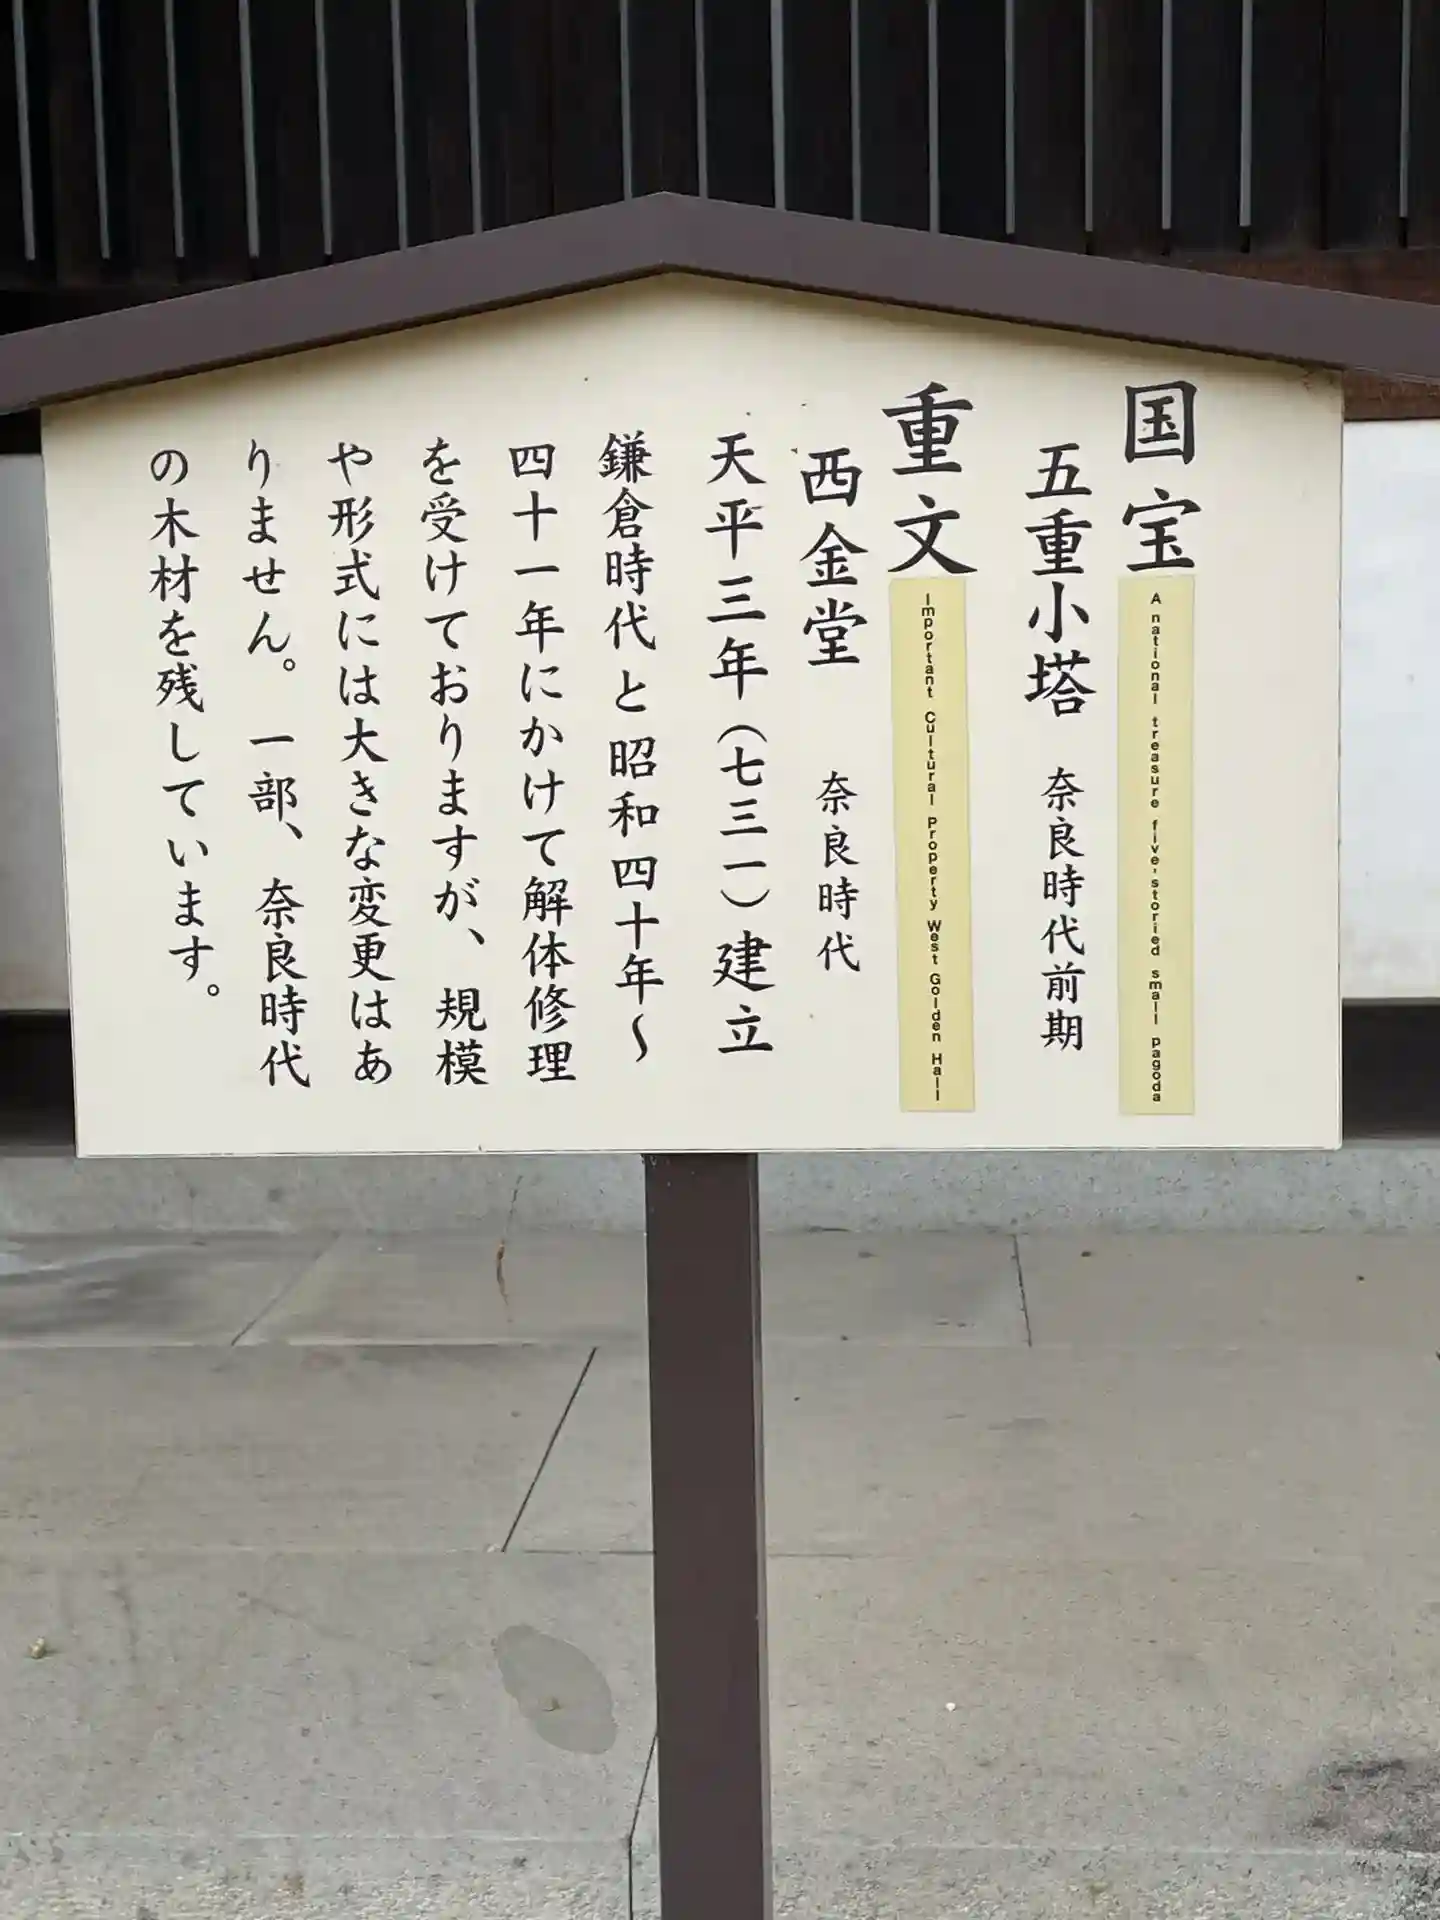 国宝
A national treasure five-storied small pagoda
五重小塔 奈良時代前期
重文
Important Cultural Property West Golden Hall
西金堂 奈良時代
天平三年（七三一）建立
鎌倉時代と昭和四十年～
四十一年にかけて解体修理
を受けておりますが、規模
や形式には大きな変更はあ
りません。一部、奈良時代
の木材を残しています。